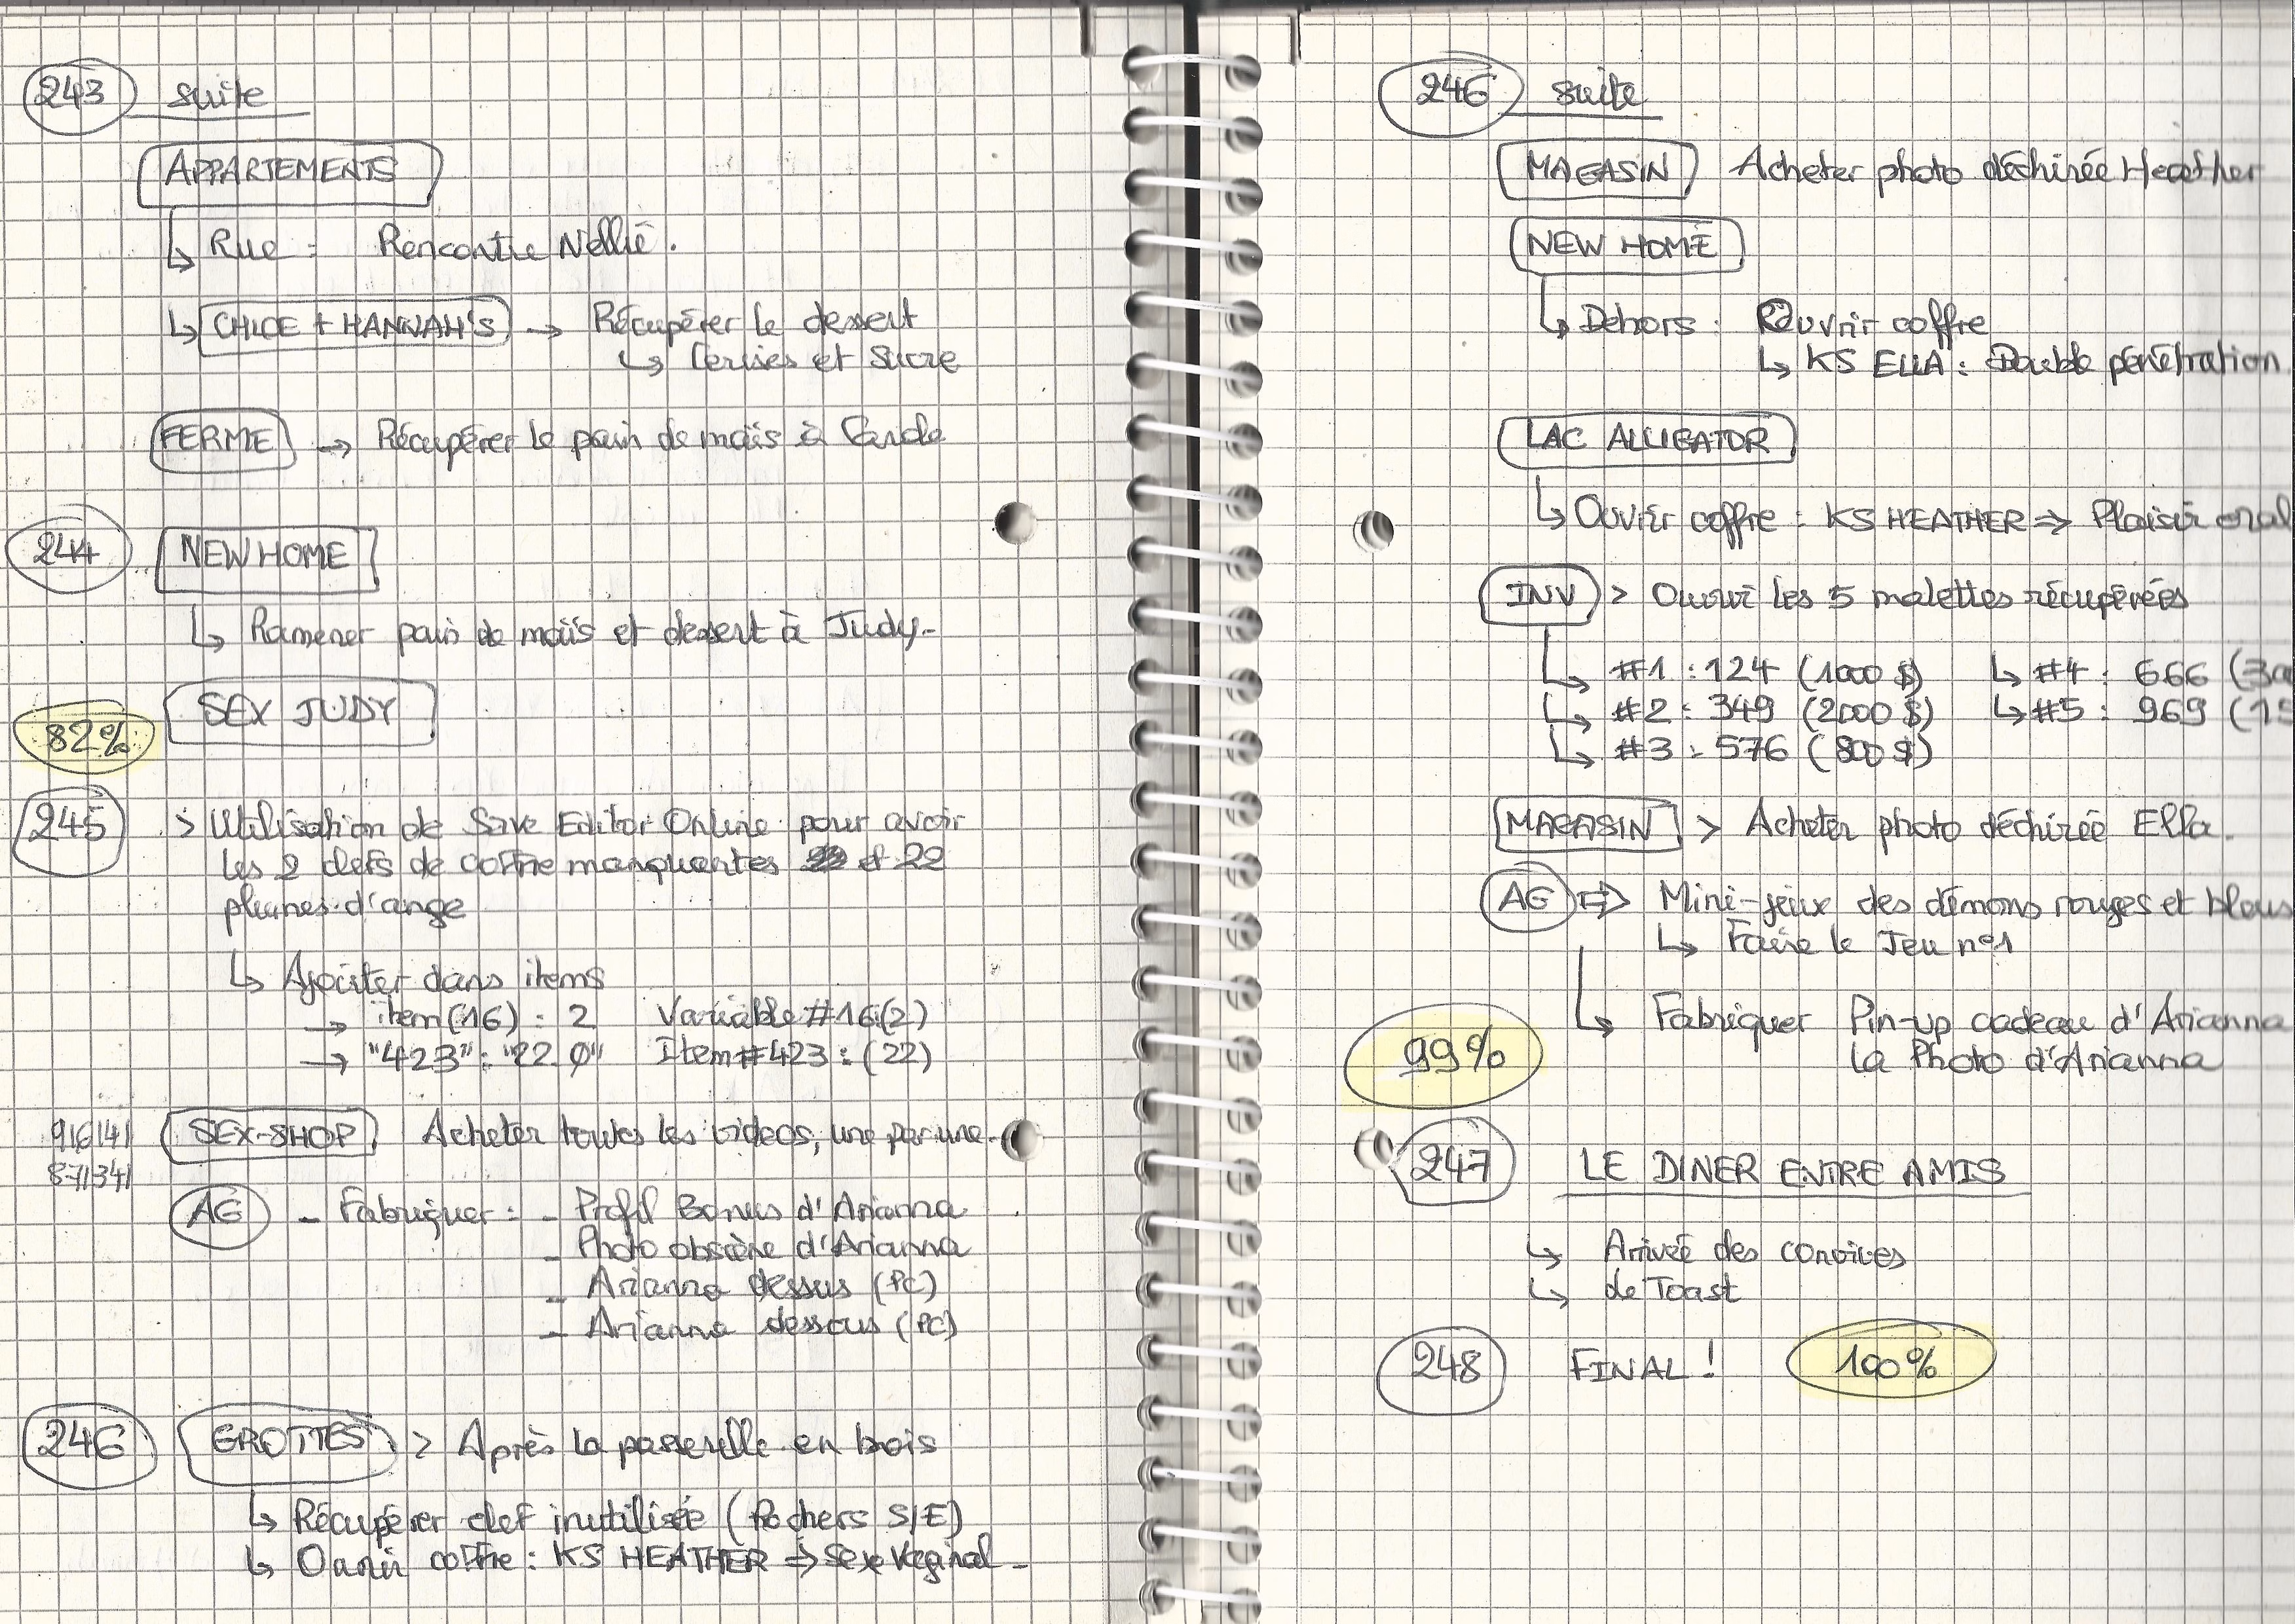 243 suite
APPARTEMENTS
↳ Rue : Rencontre Nellie.
↳ CHLOE + HANNAH'S → Récupérer le dessert
↳ Cerises et Sucre
FERME → Récupérer le pain de maïs à Carole
244 NEW HOME
↳ Ramener pain de maïs et dessert à Judy.
82% SEX JUDY
245 > Utilisation de Save Editor Online pour avoir
les 2 clefs de coffre manquantes et 22
plumes d'ange
↳ Ajouter dans items
→ item(16) : 2 Variable #16:(2)
→ "423" : "22.0" Item #423 : (22)
916141 SEX-SHOP Acheter toutes les videos, une par une.
871341
AG - Fabriquer : - Profil Bonus d'Arianna
- Photo obscène d'Arianna
- Arianna dessus (PC)
- Arianna dessous (PC)
246 GROTTES > Après la passerelle en bois
↳ Récupérer clef inutilisée (Rochers S/E)
↳ Ouvrir coffre : KS HEATHER ⇒ Sexe Vaginal -
246 suite
MAGASIN Acheter photo déchirée Heather
NEW HOME
↳ Dehors : Rouvrir coffre
↳ KS ELLA : Double pénétration.
LAC ALLIGATOR
↳ Ouvrir coffre : KS HEATHER ⇒ Plaisir oral
INV > Ouvrir les 5 malettes récupérées
↳ #1 : 124 (1000 $) ↳ #4 : 666 (30
↳ #2 : 349 (2000 $) ↳ #5 : 969 (15
↳ #3 : 576 (800 $)
MAGASIN > Acheter photo déchirée Ella.
AG ⇒ Mini-jeux des démons rouges et bleus
↳ Faire le Jeu n°1
↳ Fabriquer Pin-up cadeau d'Arianna
99% La Photo d'Arianna
247 LE DINER ENTRE AMIS
↳ Arrivée des convives
↳ de Toast
248 FINAL ! 100%